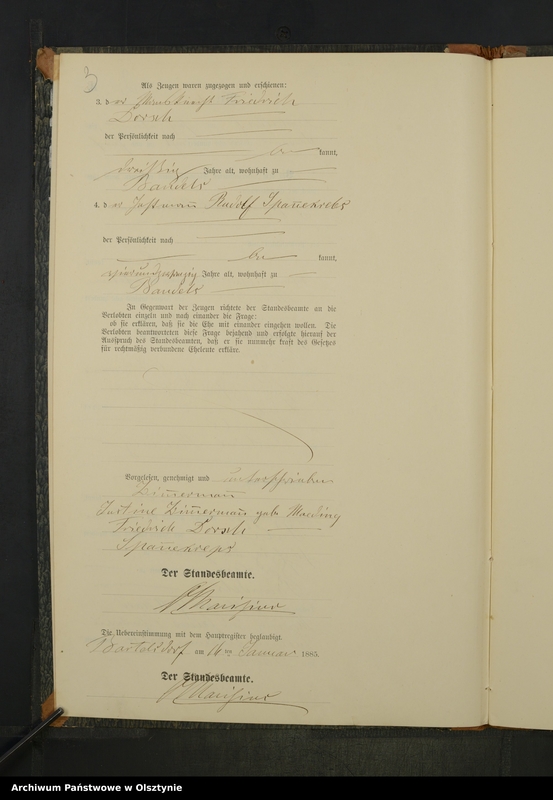 3
Als Zeugen waren zugezogen und erschienen:
3. der Friedrich
Dorsch
der Persönlichkeit nach
be kannt,
dreißig Jahre alt, wohnhaft zu
Bandels
4. der Rudolf Spannekrebs
der Persönlichkeit nach
be kannt,
Jahre alt, wohnhaft zu
Bandels
In Gegenwart der Zeugen richtete der Standesbeamte an die
Verlobten einzeln und nach einander die Frage:
ob sie erklären, daß sie die Ehe mit einander eingehen wollen. Die
Verlobten beantworteten diese Frage bejahend und erfolgte hierauf der
Ausspruch des Standesbeamten, daß er sie nunmehr kraft des Gesetzes
für rechtmäßig verbundene Eheleute erkläre.
Vorgelesen, genehmigt und unterschrieben
Zimmermann
Justine Zimmermann geb.
Friedrich Dorsch
Spannekreps
Der Standesbeamte.
Die Uebereinstimmung mit dem Hauptregister beglaubigt.
Bartelsdorf am 16ten Januar 1885.
Der Standesbeamte.
Archiwum Państwowe w Olsztynie